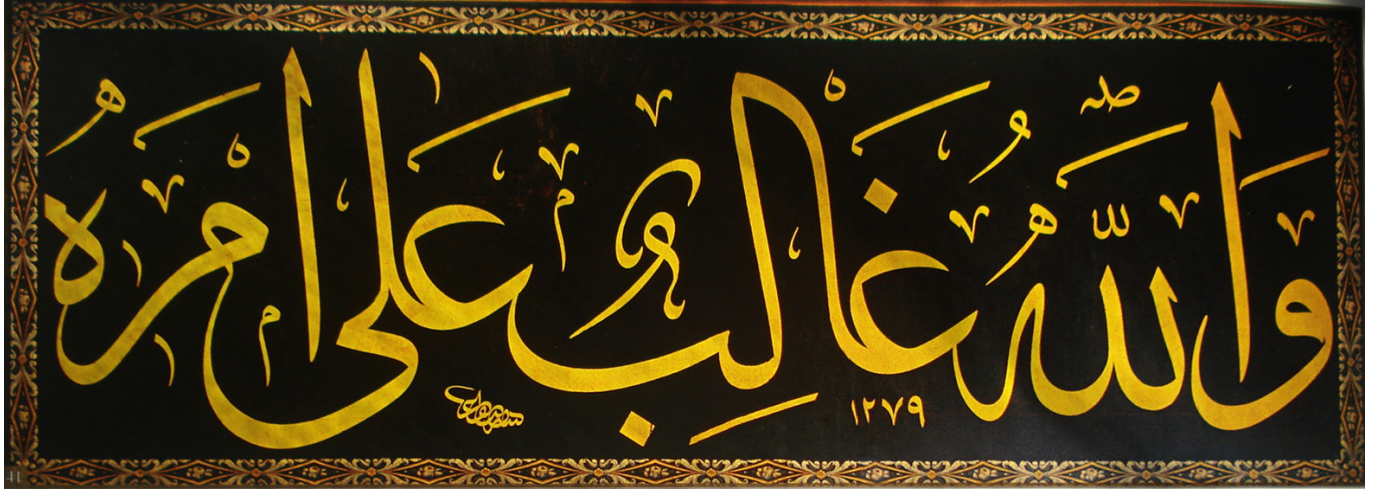 وَاللّٰهُ غَالِبٌ عَلٰى اَمْرِهِ
١٢٧٩
11